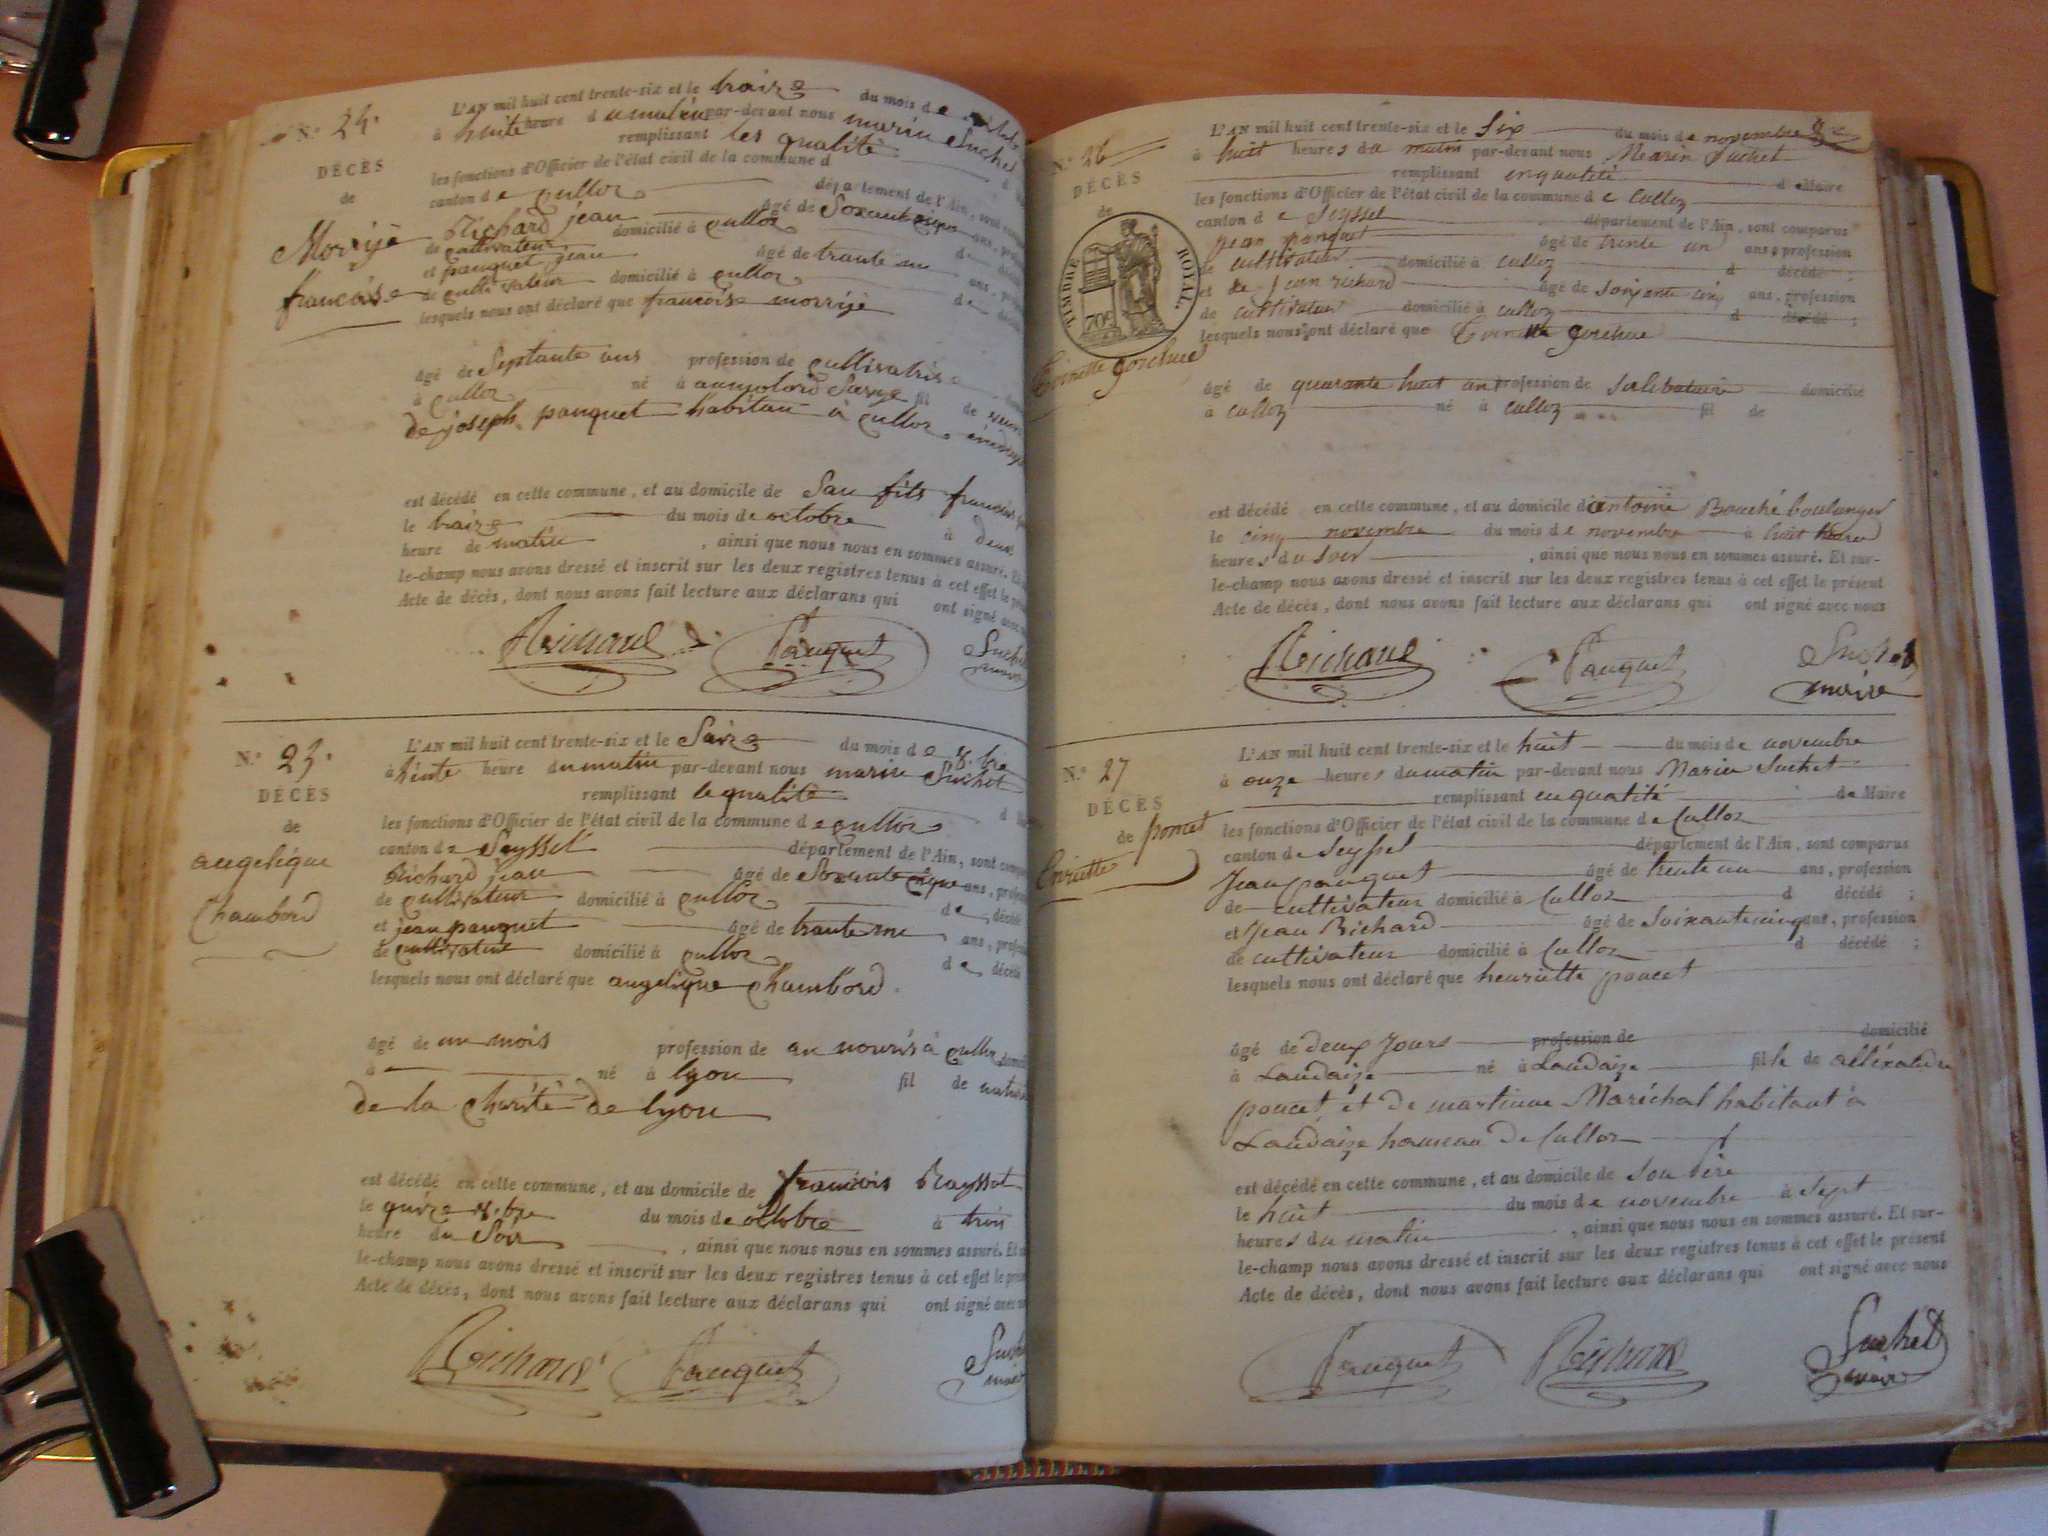 N.° 24.
DÉCÈS
de
Morrije
francoise
L'AN mil huit cent trente-six et le traize du mois de
à huite heure du matin par-devant nous marin Suchet
remplissant les qualité
les fonctions d'Officier de l'état civil de la commune d
canton de culloz département de l'Ain, sont
Richard jean âgé de Soxante ans,
de cultivateur domicilié à culloz de
et pauquet jean âgé de trante un ans,
de cultivateur domicilié à culloz de
lesquels nous ont déclaré que francoise morrije
âgé de Septante ans profession de
à culloz né à fil de
de joseph pauquet habitan à culloz
est décédé en cette commune, et au domicile de Son fils francois
le traize du mois de octobre à deux
heure de matin , ainsi que nous nous en sommes assuré. Et
le-champ nous avons dressé et inscrit sur les deux registres tenus à cet effet le
Acte de décès, dont nous avons fait lecture aux déclarans qui ont signé avec
Richard Pauquet Suchet
N.° 25.
DÉCÈS
de
angelique
Chambord
L'AN mil huit cent trente-six et le Saize du mois de 8.bre
à heure du matin par-devant nous marin Suchet
remplissant le qualité
les fonctions d'Officier de l'état civil de la commune de culloz
canton de Seyssel département de l'Ain, sont
Richard jean âgé de Soxante ans,
de cultivateur domicilié à culloz de décédé
et jean pauquet âgé de trante un ans,
de cultivateur domicilié à culloz de décédé
lesquels nous ont déclaré que angelique Chambord
âgé de un mois profession de an nouris à culloz
à né à lyon fil de
de la Charité de lyon
est décédé en cette commune, et au domicile de francois Rayssot
le quize 8.bre du mois de octobre à trois
heure du Soir , ainsi que nous nous en sommes assuré. Et
le-champ nous avons dressé et inscrit sur les deux registres tenus à cet effet le
Acte de décès, dont nous avons fait lecture aux déclarans qui ont signé avec
Richard Pauquet
N.° 26
DÉCÈS
de
TIMBRE ROYAL.
70c
gorchue
L'AN mil huit cent trente-six et le Six du mois de novembre
à huit heures du matin par-devant nous Marin Suchet
remplissant en qualité d Maire
les fonctions d'Officier de l'état civil de la commune de culloz
canton de Seyssel département de l'Ain, sont comparus
jean pauquet âgé de trente un ans, profession
de cultivateur domicilié à culloz d décédé ;
et de jean richard âgé de soixante cinq ans, profession
de cultivateur domicilié à culloz d décédé ;
lesquels nous ont déclaré que gorchue
âgé de quarante huit ans profession de domicilié
à culloz né à culloz fil de
est décédé en cette commune, et au domicile d'antoine Bouché boulanger
le cinq novembre du mois de novembre à huit heures
heures du soir , ainsi que nous nous en sommes assuré. Et sur-
le-champ nous avons dressé et inscrit sur les deux registres tenus à cet effet le présent
Acte de décès, dont nous avons fait lecture aux déclarans qui ont signé avec nous
Richard Pauquet Suchet
maire
N.° 27
DÉCÈS
de poncet
Enriette
L'AN mil huit cent trente-six et le huit du mois de novembre
à onze heures du matin par-devant nous Marin Suchet
remplissant en qualité de Maire
les fonctions d'Officier de l'état civil de la commune de Culloz
canton de Seyssel département de l'Ain, sont comparus
Jean pauquet âgé de trente un ans, profession
de cultivateur domicilié à Culloz d décédé ;
et Jean Richard âgé de Soixante cinq ans, profession
de cultivateur domicilié à Culloz d décédé ;
lesquels nous ont déclaré que henriette poncet
âgé de deux Jours profession de domicilié
à Landaize né à Landaize fille de
poncet et de martinne Maréchal habitant à
Landaize hameau de Culloz
est décédé en cette commune, et au domicile de son père
le huit du mois de novembre à sept
heures du matin , ainsi que nous nous en sommes assuré. Et sur-
le-champ nous avons dressé et inscrit sur les deux registres tenus à cet effet le présent
Acte de décès, dont nous avons fait lecture aux déclarans qui ont signé avec nous
Pauquet Richard Suchet
maire